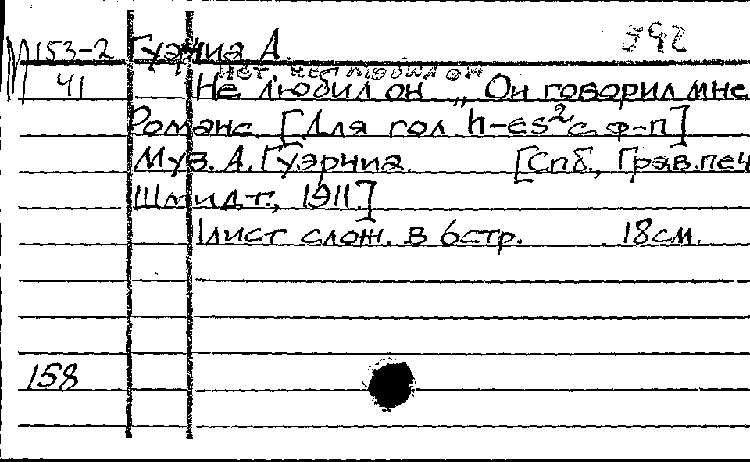 М 153-2 Гуэрчиа А. 592
41 нет, не любил он
Не любил он „Он говорил мне
Романс. [Для гол. h-es² с ф-п]
Муз. А. Гуэрчиа. [Спб., Грав. печ
Шмидт, 1911]
1 лист слож. в 6 стр. 18 см.
158